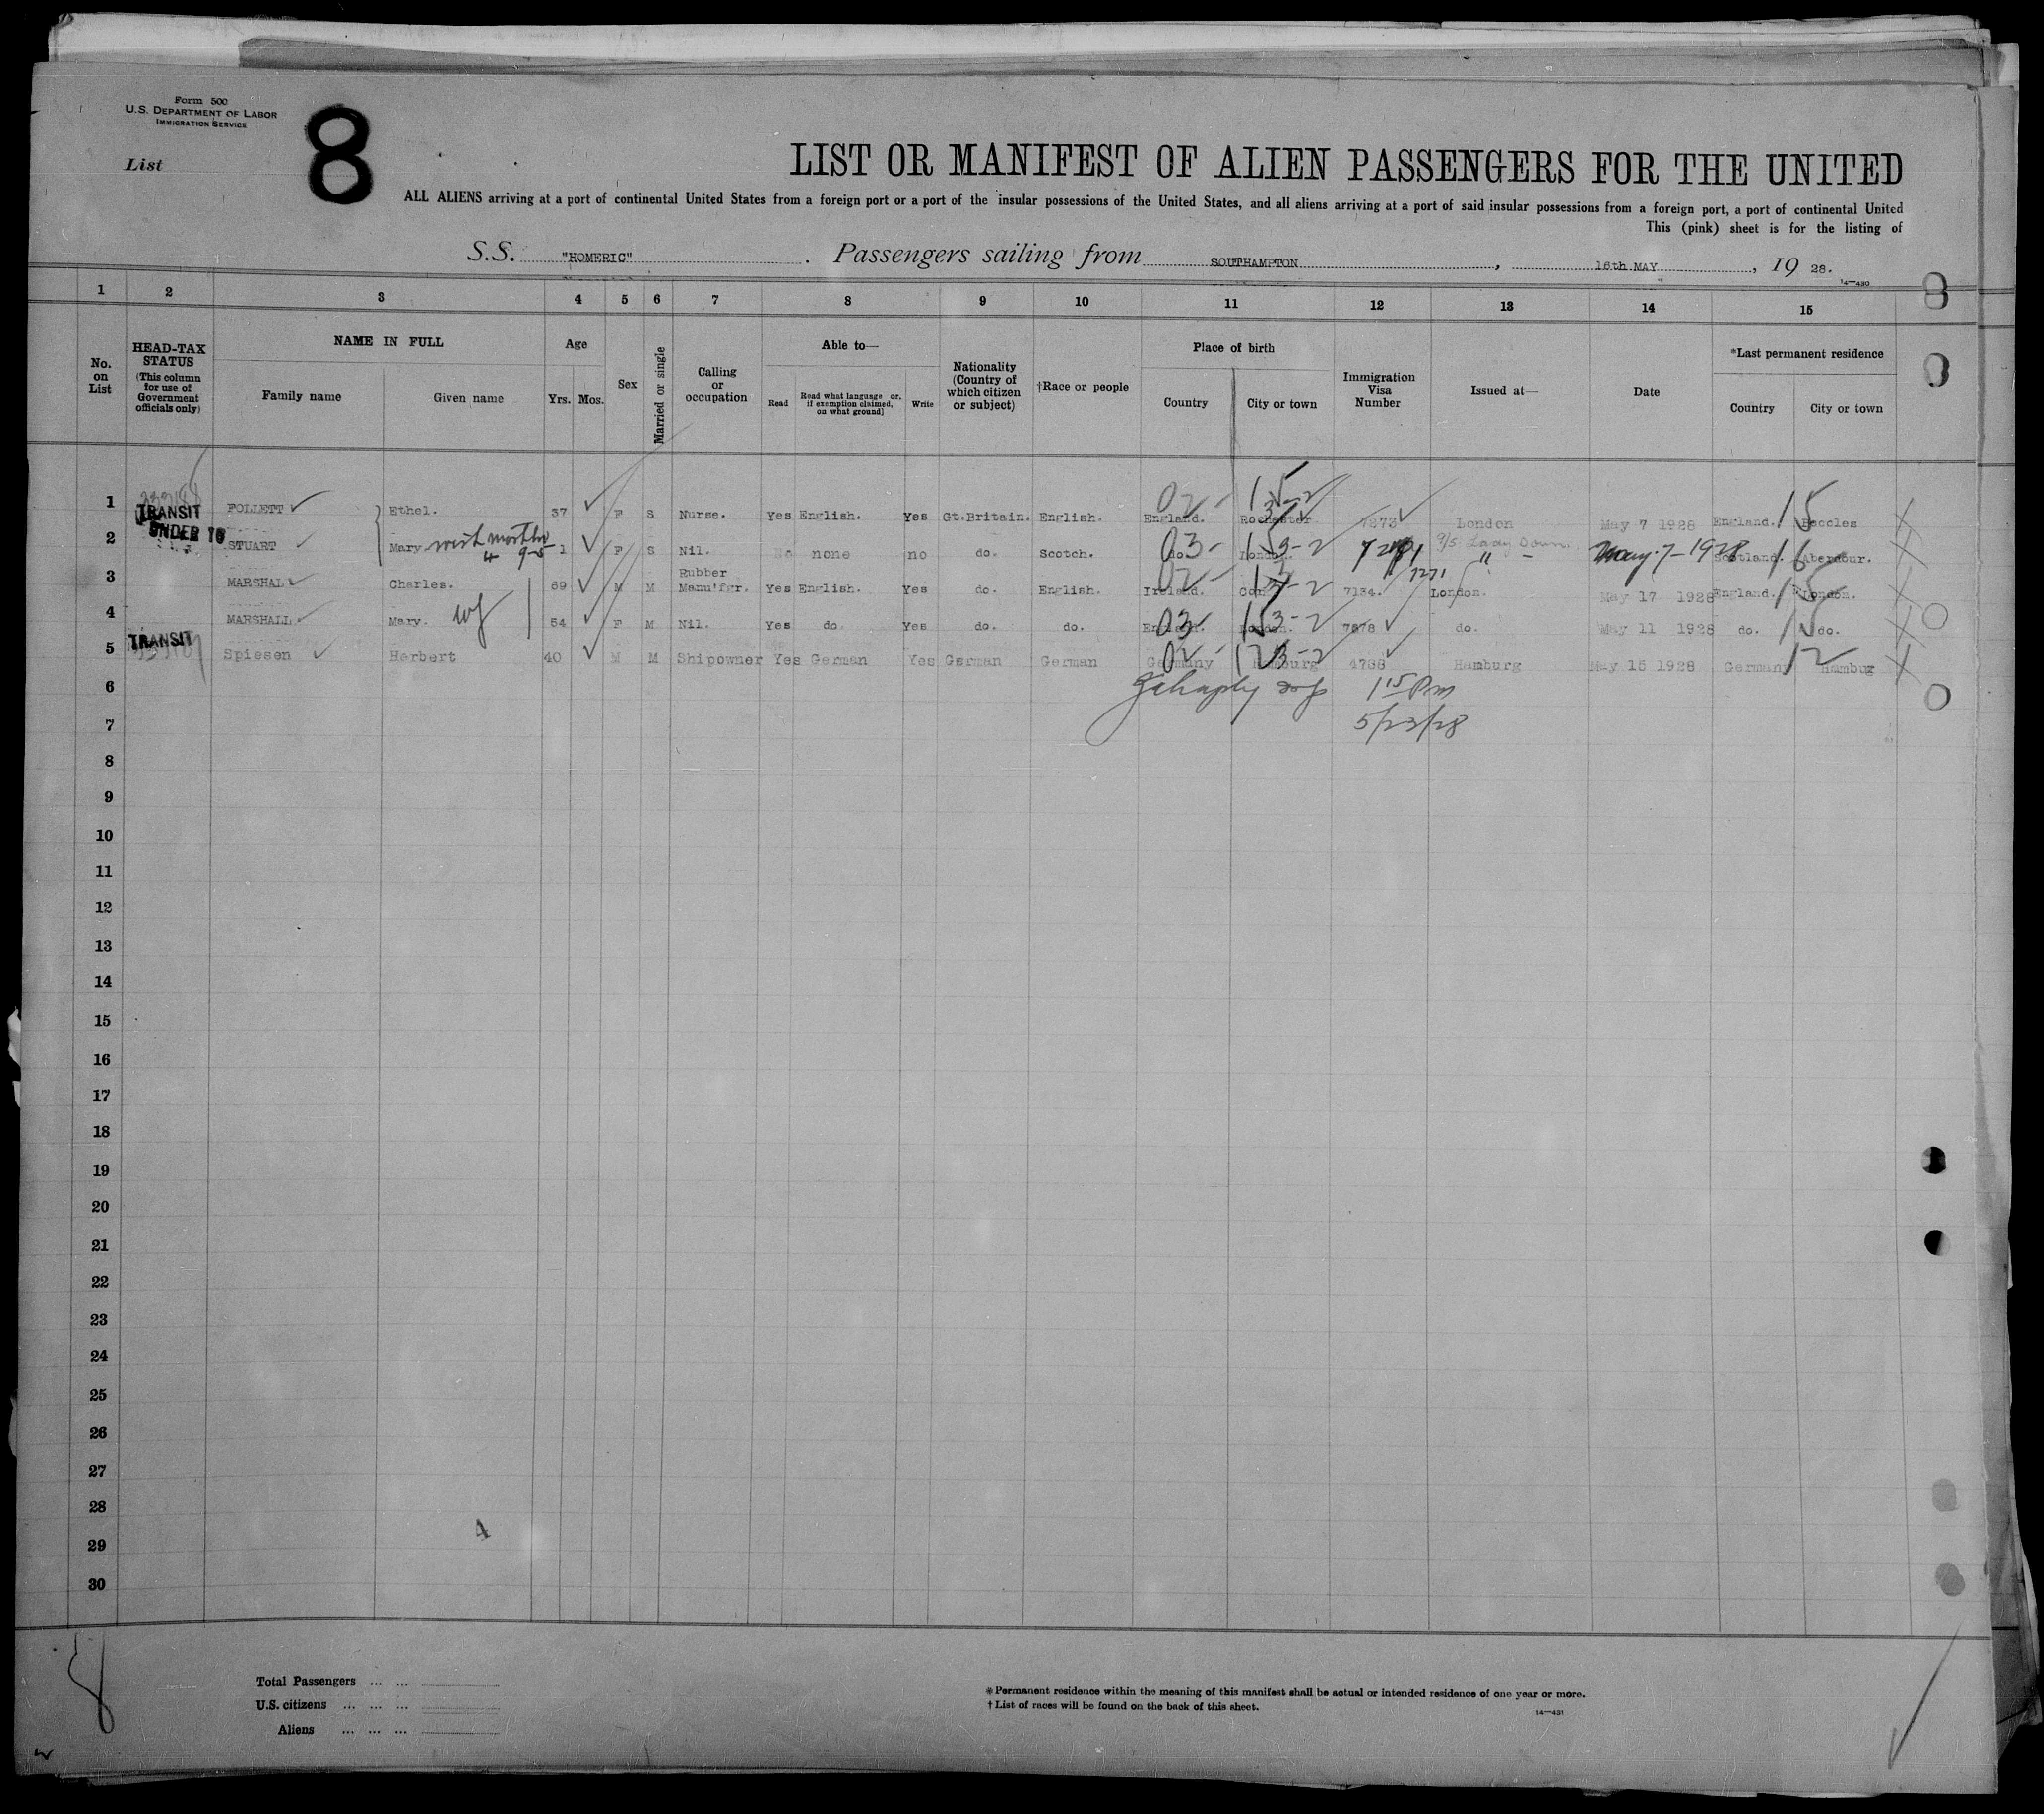 Form 500
U.S. DEPARTMENT OF LABOR
IMMIGRATION SERVICE
List 8
LIST OR MANIFEST OF ALIEN PASSENGERS FOR THE UNITED
ALL ALIENS arriving at a port of continental United States from a foreign port or a port of the insular possessions of the United States, and all aliens arriving at a port of said insular possessions from a foreign port, a port of continental United
This (pink) sheet is for the listing of
S.S. "HOMERIC". Passengers sailing from SOUTHAMPTON, 16th MAY, 19 28.
14—430
1 2 3 4 5 6 7 8 9 10 11 12 13 14 15
8
No. on List
HEAD-TAX STATUS
(This column for use of Government officials only)
NAME IN FULL
Family name Given name
Age
Yrs. Mos.
Sex
Married or single
Calling or occupation
Able to—
Read Read what language or, if exemption claimed, on what ground] Write
Nationality (Country of which citizen or subject)
†Race or people
Place of birth
Country City or town
Immigration Visa Number
Issued at—
Date
*Last permanent residence
Country City or town
02- 15
1 TRANSIT FOLLETT Ethel. 37 F S Nurse. Yes English. Yes Gt.Britain. English. England. Rochester 7273 London May 7 1928 England. 15 Beccles
UNDER 16
2 STUART Mary 1 F S Nil. No none no do. Scotch. do. 03- London. 153-2 May 7-1928 Scotland. 16 Aberdour.
3 MARSHAL Charles. 69 M M Rubber Manu'fgr. Yes English. Yes do. English. Ireland. 02 7134. 7271 London. May 17 1928 England. 15 London.
4 MARSHALL Mary. wf 54 F M Nil. Yes do. Yes do. do. England. 03 London. 153-2 7878 do. May 11 1928 do. 15 do.
5 TRANSIT Spiesen Herbert 40 M M Shipowner Yes German Yes German German Germany 02- Hamburg 4788 Hamburg May 15 1928 Germany 12 Hamburg
6 1 15 Pm
7 5/23/28
8
9
10
11
12
13
14
15
16
17
18
19
20
21
22
23
24
25
26
27
28
4
29
30
8
Total Passengers ... ...
U.S. citizens ... ... ...
Aliens ... ... ...
*Permanent residence within the meaning of this manifest shall be actual or intended residence of one year or more.
†List of races will be found on the back of this sheet.
14—431